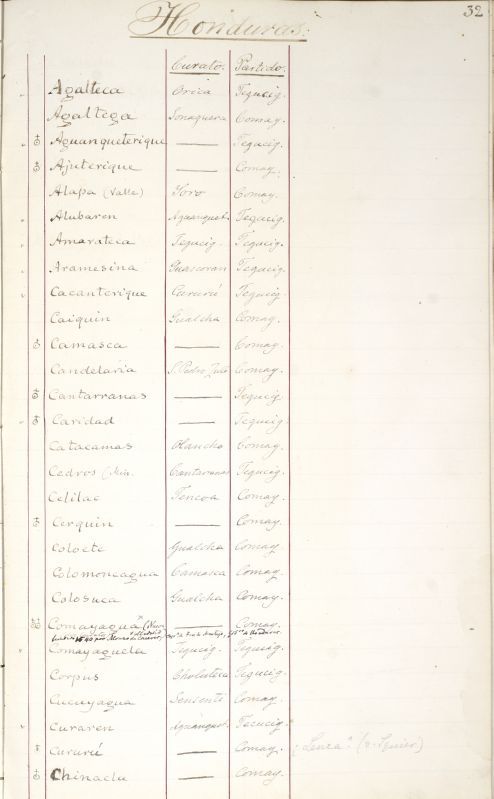 32
Honduras.
Curato. Partido.
Agalteca Orica Tegucig.
Agaltega Sonaguera Comay.
♁ Aguanqueterique — Tegucig.
♁ Ajuterique — Comay.
Alapa (Valle) Yoro Comay.
Alubaren Aguanquet. Tegucig.
Amarateca Tegucig. Tegucig.
Aramesina Guascoran Tegucig.
Cacanterique Cururú Tegucig.
Caiquin Gualcha Comay.
♁ Camasca — Comay.
Candelaria S. Pedro Zula Comay.
♁ Cantarranas — Tegucig.
♁ Caridad — Tegucig.
Catacamas Olancho Comay.
Cedros Cantaranas Tegucig.
Celilac Tencoa Comay.
♁ Cerquin — Comay.
Colocte Gualcha Comay.
Colomoncagua Camasca Comay.
Colosuca Gualcha Comay.
Comayagua — Comay.
1540 por Alonso de Caceres
Comayaguela Tegucig. Tegucig.
Corpus Choluteca Tegucig.
Cucuyagua Sensenti Comay.
Curaren Aguanquet. Tegucig.
♁ Cururú — Comay. (v. Squier)
♁ Chinacla — Comay.